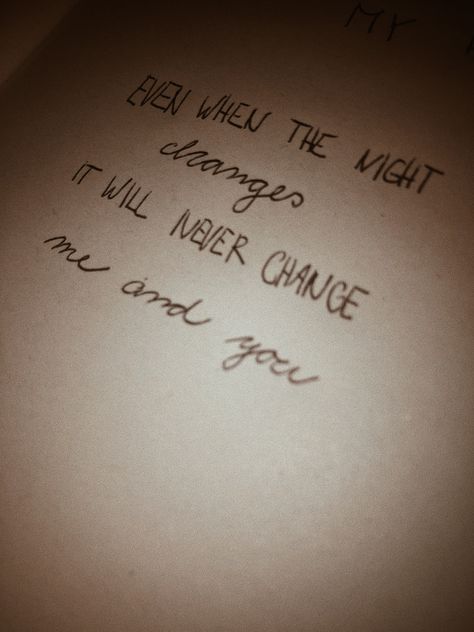 MY
EVEN WHEN THE NIGHT
changes
IT WILL NEVER CHANGE
me and you